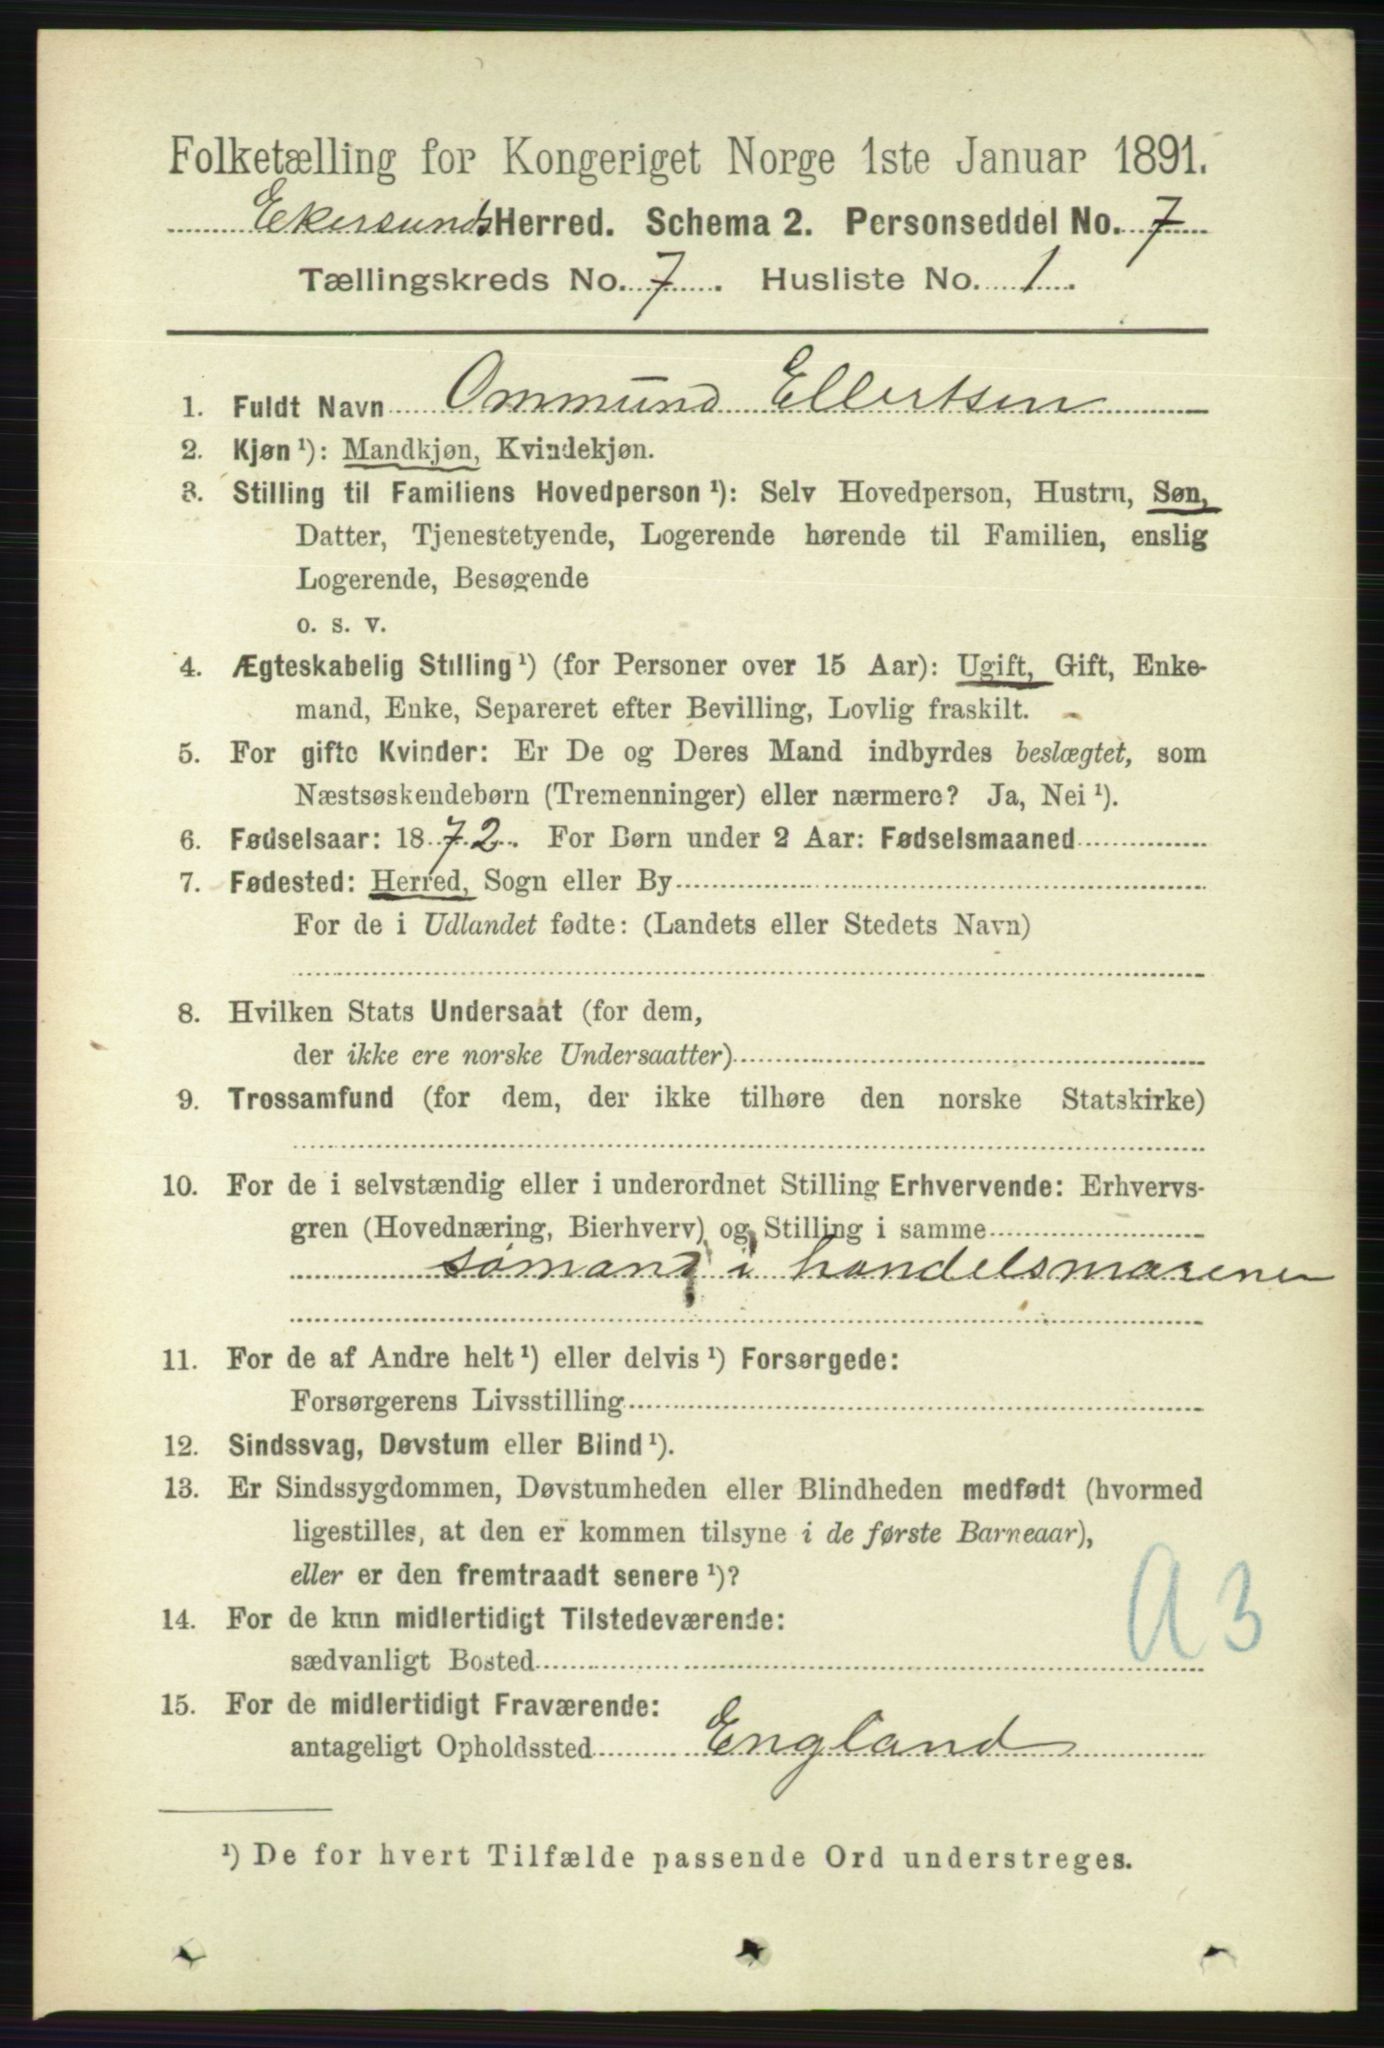 Folketælling for Kongeriget Norge 1ste Januar 1891.
Ekersunds Herred. Schema 2. Personseddel No. 7
Tællingskreds No. 7. Husliste No. 1.
1. Fuldt Navn Ommund Ellertsen
2. Kjøn ¹): Mandkjøn, Kvindekjøn.
3. Stilling til Familiens Hovedperson ¹): Selv Hovedperson, Hustru, Søn,
Datter, Tjenestetyende, Logerende hørende til Familien, enslig
Logerende, Besøgende
o. s. v.
4. Ægteskabelig Stilling ¹) (for Personer over 15 Aar): Ugift, Gift, Enke-
mand, Enke, Separeret efter Bevilling, Lovlig fraskilt.
5. For gifte Kvinder: Er De og Deres Mand indbyrdes beslægtet, som
Næstsøskendebørn (Tremenninger) eller nærmere? Ja, Nei ¹).
6. Fødselsaar: 1872. For Børn under 2 Aar: Fødselsmaaned
7. Fødested: Herred, Sogn eller By
For de i Udlandet fødte: (Landets eller Stedets Navn)
8. Hvilken Stats Undersaat (for dem,
der ikke ere norske Undersaatter)
9. Trossamfund (for dem, der ikke tilhøre den norske Statskirke)
10. For de i selvstændig eller i underordnet Stilling Erhvervende: Erhvervs-
gren (Hovednæring, Bierhverv) og Stilling i samme
sømand i handelsmarenen
11. For de af Andre helt ¹) eller delvis ¹) Forsørgede:
Forsørgerens Livsstilling
12. Sindssvag, Døvstum eller Blind ¹).
13. Er Sindssygdommen, Døvstumheden eller Blindheden medfødt (hvormed
ligestilles, at den er kommen tilsyne i de første Barneaar),
eller er den fremtraadt senere ¹)?
A 3
14. For de kun midlertidigt Tilstedeværende:
sædvanligt Bosted
15. For de midlertidigt Fraværende:
antageligt Opholdssted England
¹) De for hvert Tilfælde passende Ord understreges.